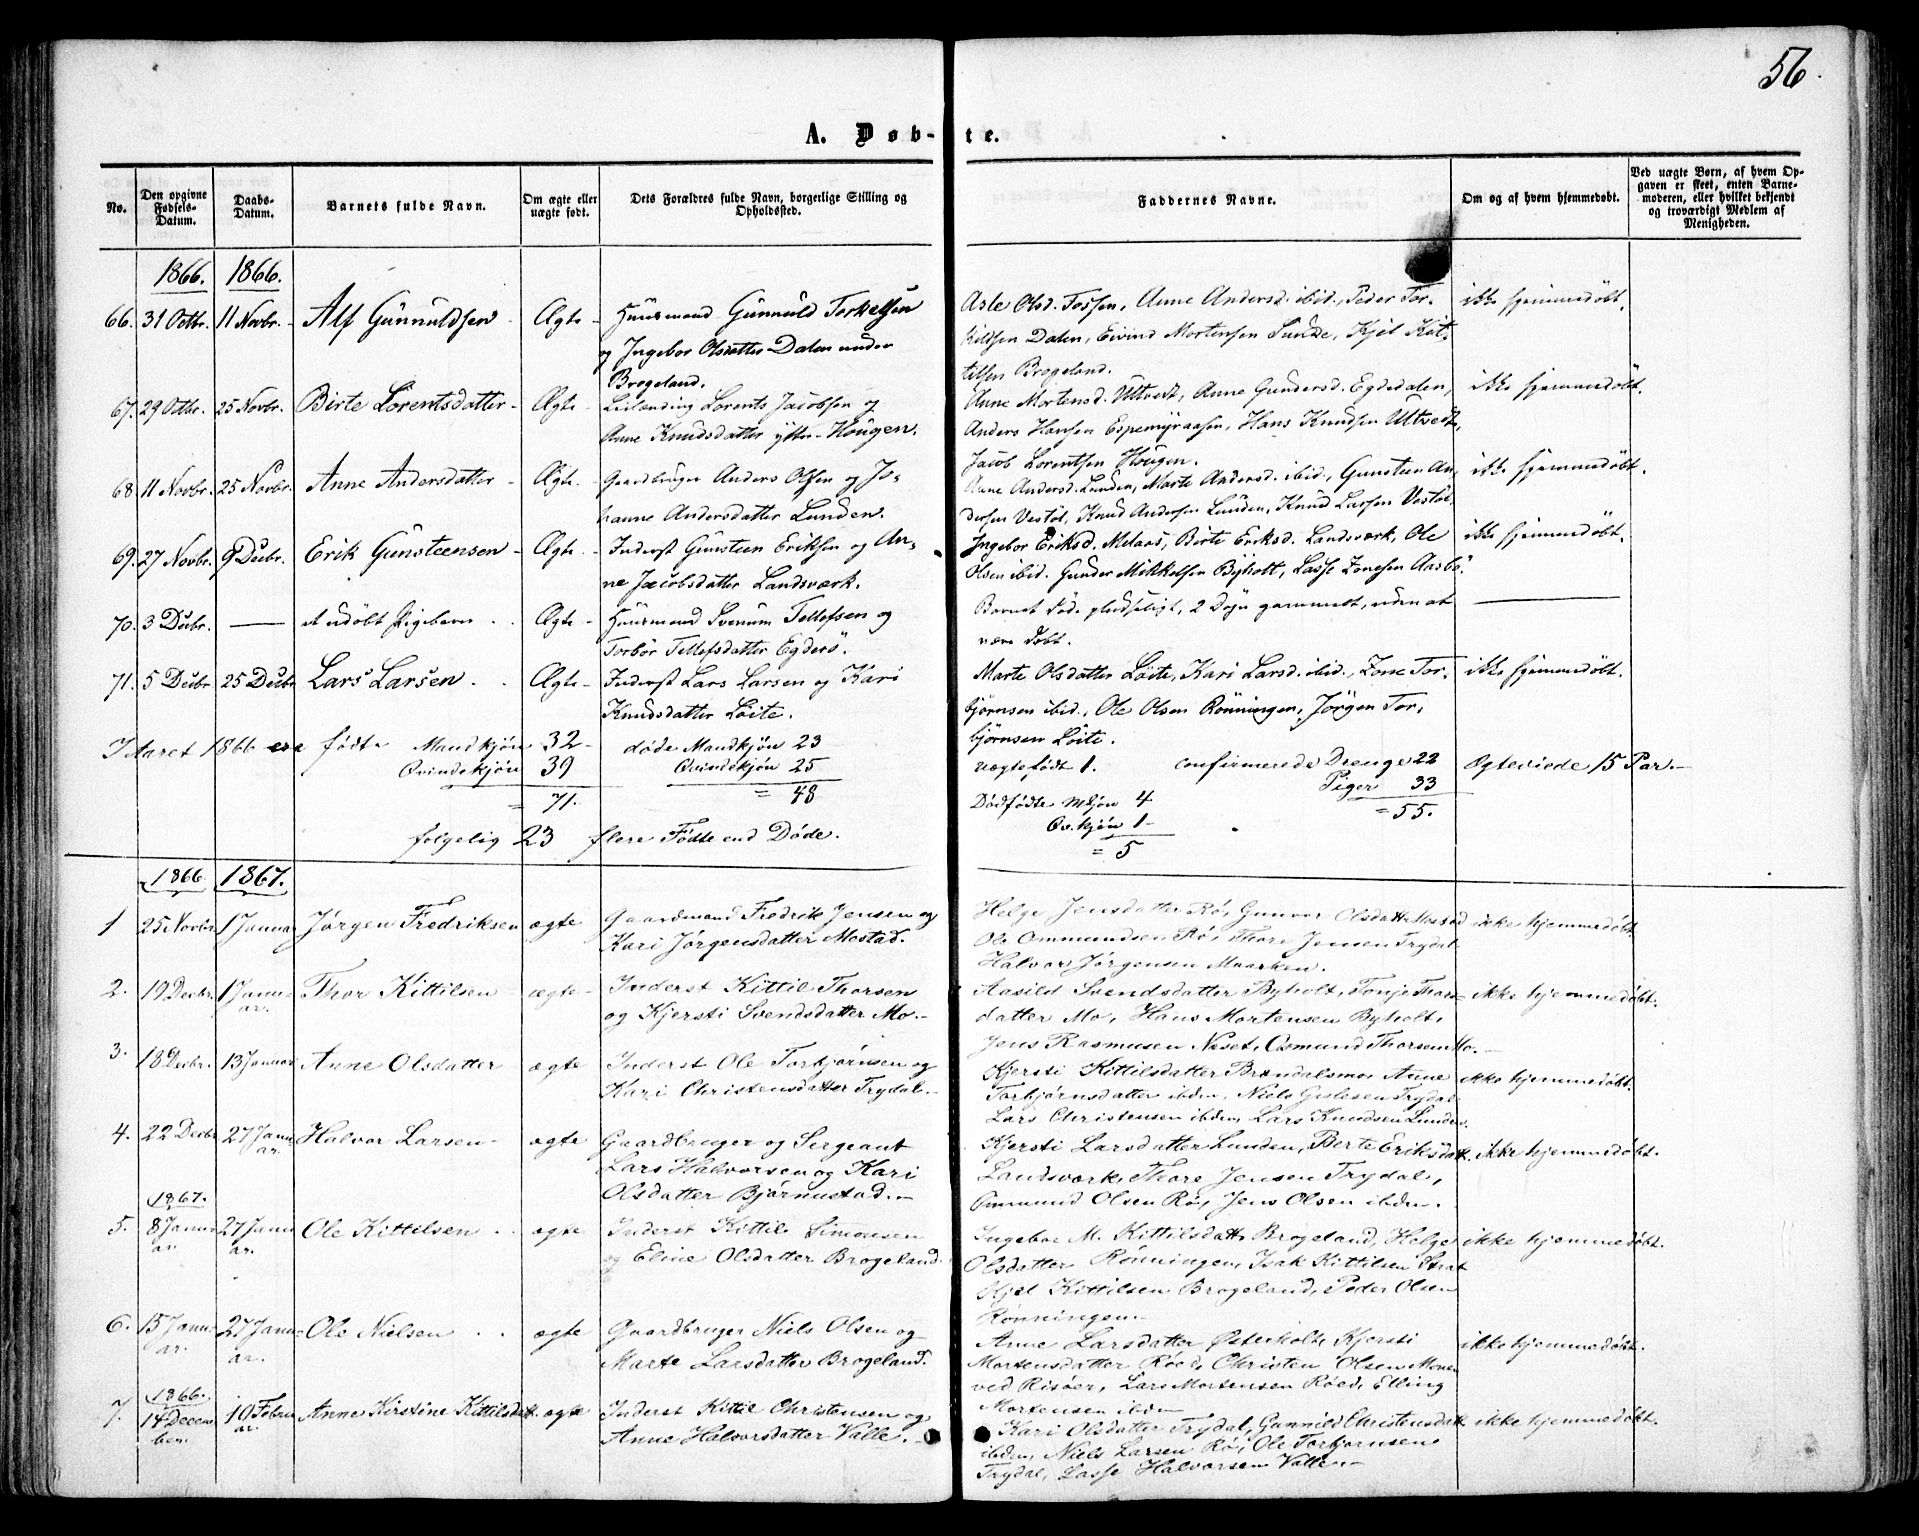 56.
A. Døb-te.
No.
Den opgivne Fødsels-Datum.
Daabs-Datum.
Barnets fulde Navn.
Om ægte eller uægte født.
Dets Forældres fulde Navn, borgerlige Stilling og Opholdssted.
Faddernes Navne.
Om og af hvem hjemmedøbt.
Ved uægte Børn, af hvem Opgaven er skeet, enten Barnemoderen, eller hvilket bekjendt og troværdigt Medlem af Menigheden.
1866. 1866.
66. 31 Octbr. 11 Novbr. Alf Gunnuldsen Ægte Huusmand Gunnuld Torkelsen
og Ingebor Olsdatter Dalen under
Brøgeland.
Asle Olsd. Fossen, Anne Andersd. ibid., Peder Tor-
kildsen Dalen, Eivind Mortensen Sunde, Kjel Kit-
tilsen Brøgeland.
ikke hjemmedøbt.
67. 29 Octbr. 25 Novbr. Birte Lorentsdatter Ægte Leilænding Lorents Jacobsen og
Anne Knudsdatter yttre-Hougen.
Anne Mortensd. Ultvedt, Anne Gundersd. Egdedalen,
Anders Hansen Espemyraasen, Hans Knudsen Ultvedt,
Jacob Lorentsen Hougen.
ikke hjemmedøbt.
68. 11 Novbr. 25 Novbr. Anne Andersdatter Ægte Gaardbruger Anders Olsen og Jo-
hanne Andersdatter Lunden.
Anne Andersd. Lunden, Marte Andersd. ibid., Gunsteen An-
dersen Vestøl, Knud Andersen Lunden, Knud Larsen Vestøl.
ikke hjemmedøbt.
69. 27 Novbr. 9 Decbr. Erik Gunsteensen Ægte Inderst Gunsteen Eriksen og An-
ne Jacobsdatter Landsværk.
Ingebor Eriksd. Melaas, Birte Eriksd. Landsværk, Ole
Olsen ibid. Gunder Mikkelsen Byholt, Lasse Zonesen Aasbø.
ikke hjemmedøbt.
70. 3 Decbr. — et udøbt Pigebarn Ægte Huusmand Svenum Tellefsen og
Torbør Tellefsdatter Egderø.
Barnet døde pludseligt, 2 Døgn gammelt, uden at
være døbt.
71. 5 Decbr 25 Decbr Lars Larsen Ægte Inderst Lars Larsen og Kari
Knudsdatter Løite.
Marte Olsdatter Løite, Kari Larsd. ibid., Zone Tor-
bjørnsen ibid., Ole Olsen Rønningen, Jørgen Tor-
bjørnsen Løite.
ikke hjemmedøbt.
I Aaret 1866 ere fødte Mandkjøn 32 døde Mandkjøn 23
Qvindekjøn 39 Qvindekjøn 25
= 71. = 48
folgelig 23 flere Fødte end Døde.
uægtefødt 1. confirmerede Drenge 22 Ægteviede 15 Par.
Piger 33
Dødfødte Mkjøn 4 = 55.
Qv.kjøn 1
= 5
1866 1867.
1 25 Novbr 1 Januar Jørgen Fredriksen ægte Gaardmand Fredrik Jensen og
Kari Jørgensdatter Mostad.
Helge Jensdatter Rø, Gunvor Olsdatt. Mostad
Ole Ommundsen Rø, Thore Jensen Trydal
Halvor Jørgensen Maarken.
ikke hjemmedøbt.
2. 19 Decbr. 1 Januar. Thor Kittilsen ægte Inderst Kittil Thorsen
og Kjersti Svendsdatter Mo.
Aasild Svendsdatter Byholt, Tonje Thors-
datter Mo, Hans Mortensen Byholt,
Jens Rasmusen Neset, Osmund Thorsen Mo.
ikke hjemmedøbt.
3. 18 Decbr. 13 Januar Anne Olsdatter ægte Inderst Ole Torbjørnsen og
Kari Christensdatter Trydal.
Kjersti Kittilsdatter Brøndalsmo, Anne
Torbjørnsdatter ibden, Niels Gislesen Trydal
Lars Christensen ibden, Lars Knudsen Lunden.
ikke hjemmedøbt.
4. 22 Decbr 27 Januar. Halvor Larsen ægte Gaardbruger og Sergeant
Lars Halvorsen og Kari
Olsdatter Bjørnustad.
Kjersti Larsdatter Lunden, Berte Eriksdatt.
Landsværk, Thore Jensen Trydal,
Ommund Olsen Rø, Jens Olsen ibden.
ikke hjemmedøbt.
1867.
5. 8 Januar. 27 Januar. Ole Kittilsen ægte Inderst Kittil Simonsen
og Eline Olsdatter Brøgeland.
Ingebor M. Kittilsdatt. Brøgeland, Helge
Olsdatter Rønningen, Isak Kittilsen Strat
Kjel Kittilsen Brøgeland, Peder Olsen
Rønningen.
ikke hjemmedøbt.
6. 15 Januar. 27 Januar. Ole Nielsen ægte Gaardbruger Niels Olsen og
Marte Larsdatter Brøgeland.
Anne Larsdatter Østerholt, Kjersti
Mortensdatter Røed, Christen Olsen Moen
ved Risøer, Lars Mortensen Røed, Elling
Mortensen ibden
ikke hjemmedøbt.
1866.
7. 14 December. 10 Februar. Anne Kirstine Kittilsdatt. ægte Inderst Kittil Christensen og
Anne Halvorsdatter Valle.
Kari Olsdatter Trydal, Gunnild Christensdatt.
ibden, Niels Larsen Rø, Ole Torbjørnsen
Trydal, Lasse Halvorsen Valle.
ikke hjemmedøbt.